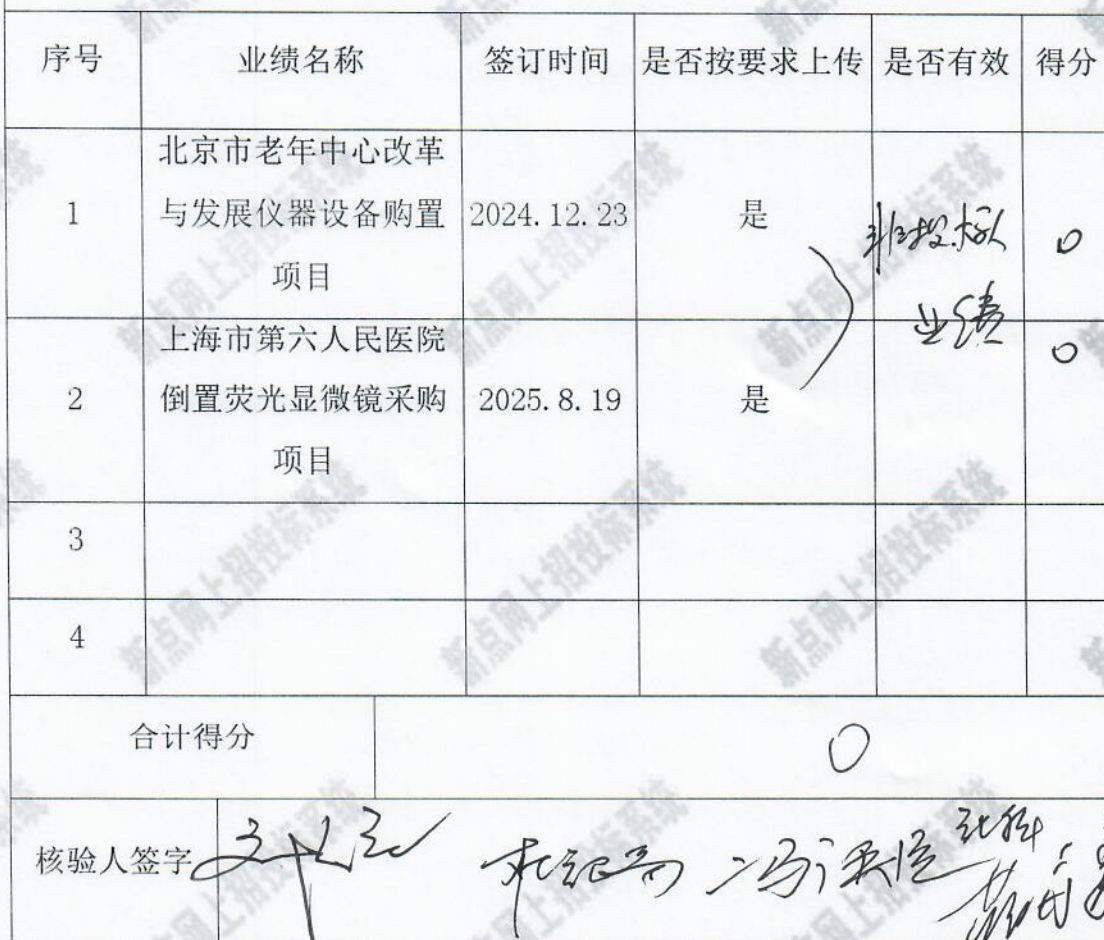 序号 业绩名称 签订时间 是否按要求上传 是否有效 得分
北京市老年中心改革
1 与发展仪器设备购置 2024.12.23 是 非投标人 0
项目
业绩
上海市第六人民医院 0
2 倒置荧光显微镜采购 2025.8.19 是
项目
3
4
合计得分 0
核验人签字
新点网上招投标系统